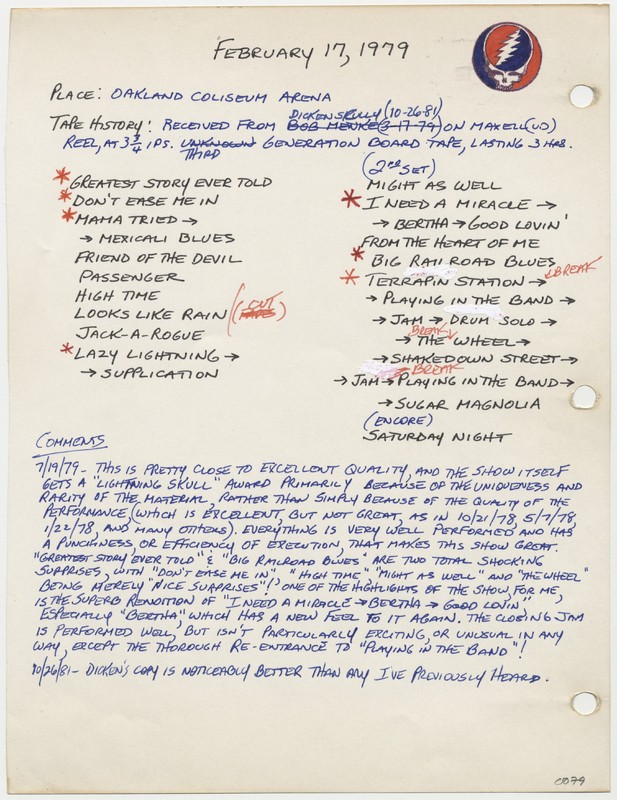 FEBRUARY 17, 1979
PLACE: OAKLAND COLISEUM ARENA
DICKEN SKULLY (10-26-81)
TAPE HISTORY: RECEIVED FROM BOB MENKE (3-17-79) ON MAXELL (UD)
REEL, AT 3 3/4 IPS. UNKNOWN GENERATION BOARD TAPE, LASTING 3 HRS.
THIRD
* GREATEST STORY EVER TOLD
* DON'T EASE ME IN
* MAMA TRIED →
→ MEXICALI BLUES
FRIEND OF THE DEVIL
PASSENGER
HIGH TIME
LOOKS LIKE RAIN (CUT)
JACK-A-ROGUE
* LAZY LIGHTNING →
→ SUPPLICATION
(2nd SET)
MIGHT AS WELL
* I NEED A MIRACLE →
→ BERTHA → GOOD LOVIN'
FROM THE HEART OF ME
* BIG RAILROAD BLUES
* TERRAPIN STATION → BREAK
→ PLAYING IN THE BAND →
→ JAM → DRUM SOLO →
BREAK
→ THE WHEEL →
→ SHAKEDOWN STREET →
BREAK
→ JAM → PLAYING IN THE BAND →
→ SUGAR MAGNOLIA
(ENCORE)
SATURDAY NIGHT
COMMENTS
7/19/79 - THIS IS PRETTY CLOSE TO EXCELLENT QUALITY, AND THE SHOW ITSELF
GETS A "LIGHTNING SKULL" AWARD PRIMARILY BECAUSE OF THE UNIQUENESS AND
RARITY OF THE MATERIAL, RATHER THAN SIMPLY BECAUSE OF THE QUALITY OF THE
PERFORMANCE (WHICH IS EXCELLENT, BUT NOT GREAT, AS IN 10/21/78, 5/7/78,
1/22/78, AND MANY OTHERS). EVERYTHING IS VERY WELL PERFORMED AND HAS
A PUNCHINESS, OR EFFICIENCY OF EXECUTION, THAT MAKES THIS SHOW GREAT.
"GREATEST STORY EVER TOLD" & "BIG RAILROAD BLUES" ARE TWO TOTAL SHOCKING
SURPRISES, WITH "DON'T EASE ME IN" "HIGH TIME" "MIGHT AS WELL" AND "THE WHEEL"
BEING MERELY "NICE SURPRISES"! ONE OF THE HIGHLIGHTS OF THE SHOW, FOR ME,
IS THE SUPERB RENDITION OF "I NEED A MIRACLE → BERTHA → GOOD LOVIN'",
ESPECIALLY "BERTHA", WHICH HAS A NEW FEEL TO IT AGAIN. THE CLOSING JAM
IS PERFORMED WELL, BUT ISN'T PARTICULARLY EXCITING, OR UNUSUAL IN ANY
WAY, EXCEPT THE THOROUGH RE-ENTRANCE TO "PLAYING IN THE BAND"!
10/26/81 - DICKEN'S COPY IS NOTICEABLY BETTER THAN ANY I'VE PREVIOUSLY HEARD.
0079